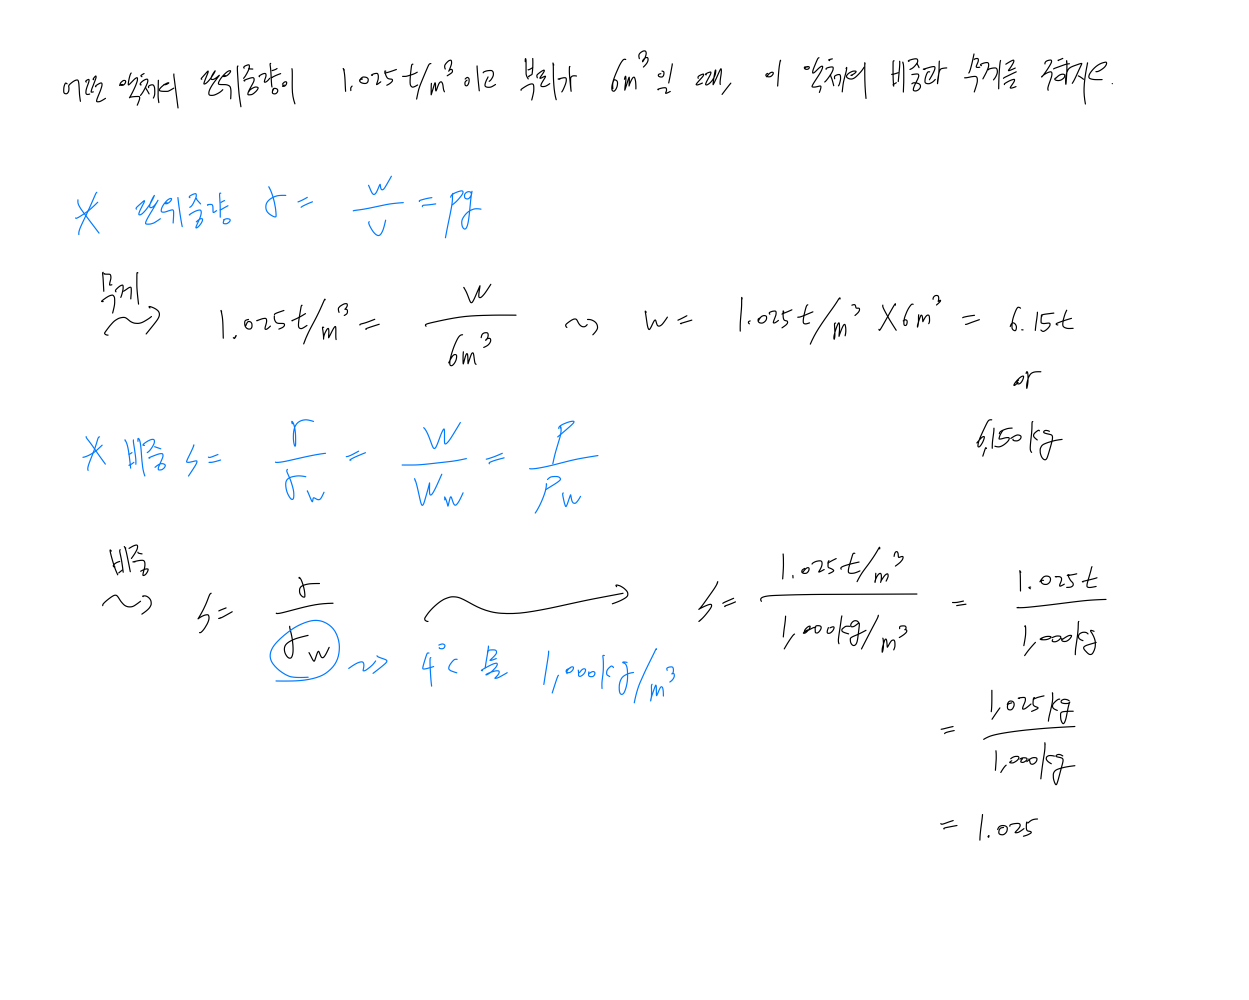 어떤 액체의 단위중량이 1.025t/m³이고 부피가 6m³일 때, 이 액체의 비중과 무게를 구하시오.
* 단위중량 γ = w/v = ρg
무게
~> 1.025t/m³ = w/6m³ ~> w = 1.025t/m³ × 6m³ = 6.15t
or
6,150kg
* 비중 s = γ/γw = W/Ww = ρ/ρw
비중
~> s = γ/γw → s = 1.025t/m³ / 1,000kg/m³ = 1.025t / 1,000kg
~> 4°C 물 1,000kg/m³
= 1,025kg / 1,000kg
= 1.025